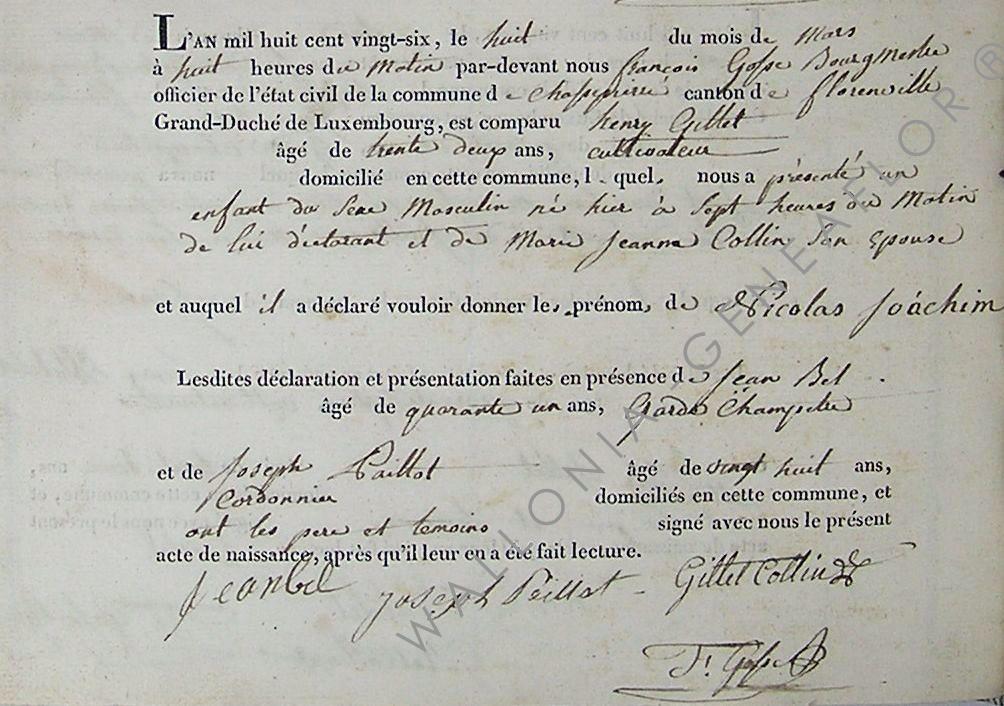 L'AN mil huit cent vingt-six, le huit du mois de Mars
à huit heures du Matin par-devant nous françois Gosse BourgMestre
officier de l'état civil de la commune de Chassepierre canton de florenville
Grand-Duché de Luxembourg, est comparu henry Gillet
âgé de trente deux ans, cultivateur
domicilié en cette commune, lequel nous a présenté un
enfant du Sexe Masculin né hier à Sept heures du Matin
de lui déclarant et de Marie Jeanne Collin Son Epouse
et auquel il a déclaré vouloir donner les prénoms de Nicolas Joáchim
Lesdites déclaration et présentation faites en présence de Jean Bel
âgé de quarante un ans, Garde Champetre
et de Joseph Paillot âgé de vingt huit ans,
Cordonnier domiciliés en cette commune, et
ont les pere et temoins signé avec nous le présent
acte de naissance, après qu'il leur en a été fait lecture.
Jean bel Joseph Peillot Gillet Collin
Fs Gosse
WALLONIA GENEAFLOR ®